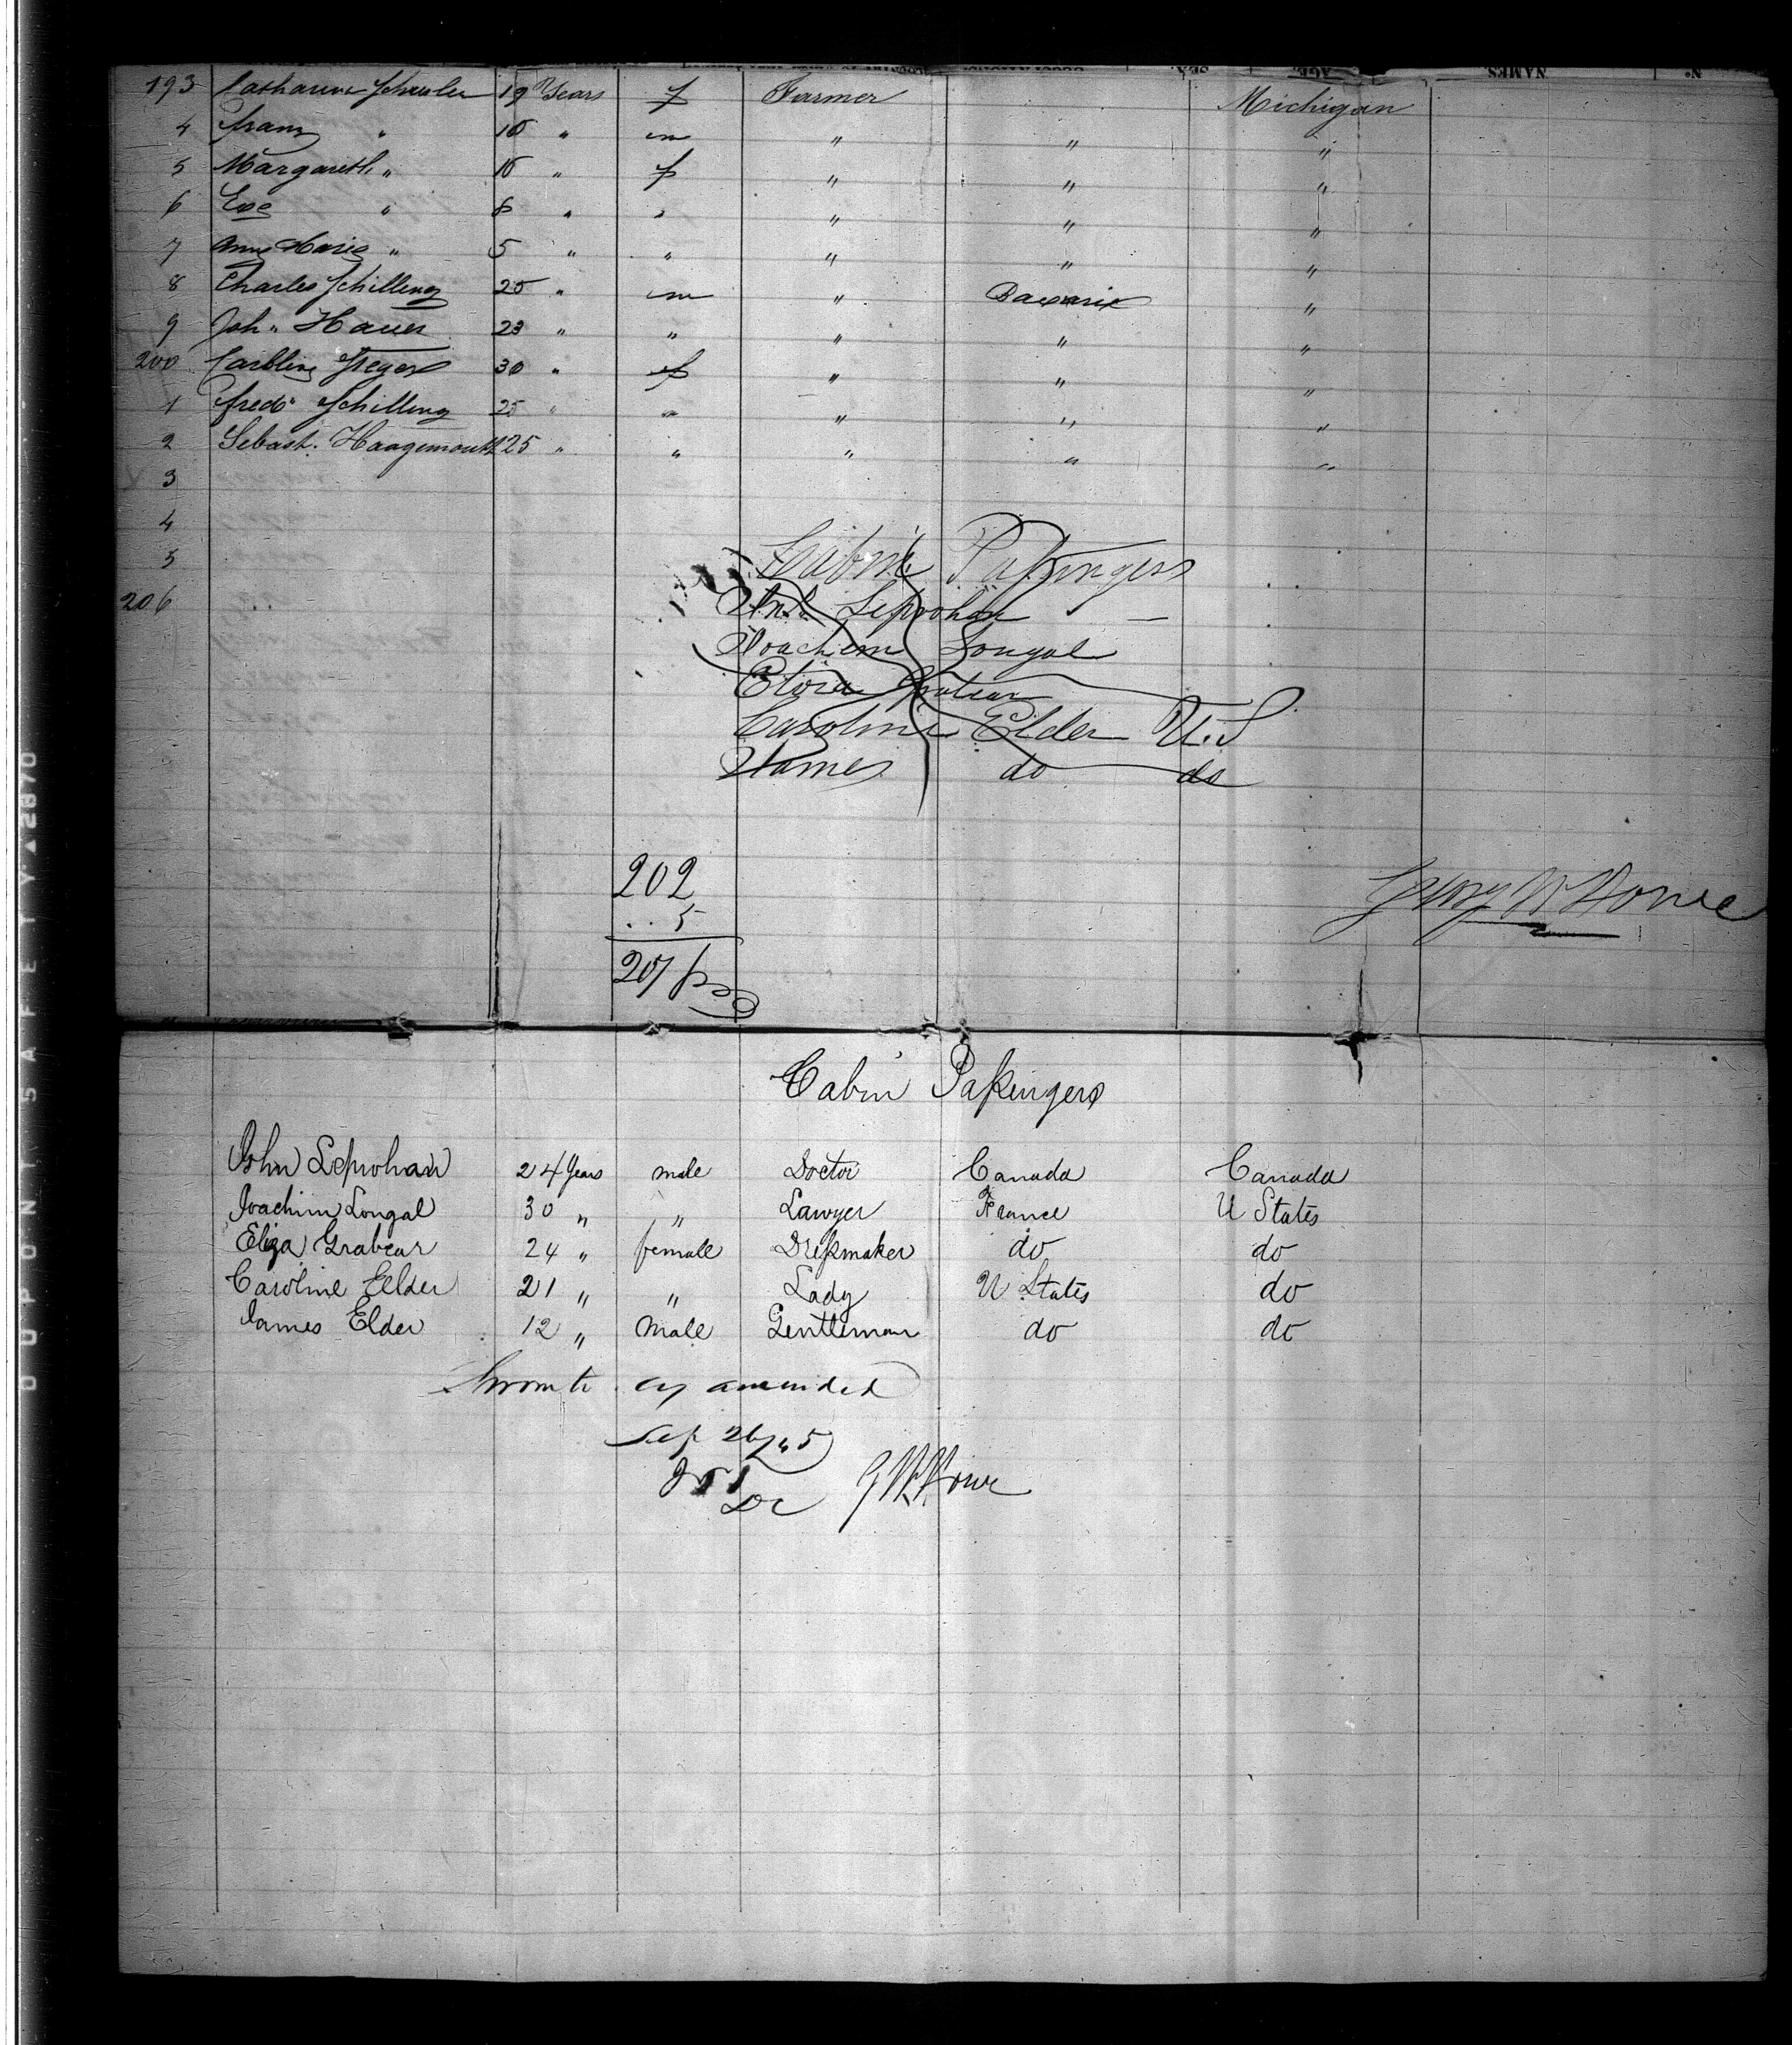 193 Catharine Schuler 19 Years f Farmer Michigan
4 Franz " 18 " m " " "
5 Margareth " 10 " f " " "
6 Eva " 8 " " " " "
7 Anna Maria " 5 " " " " "
8 Charles Schilling 25 " m " Bavaria "
9 Joh" Hauer 23 " " " " "
200 Caroline 30 " f " " "
1 Fredk Schilling 25 " " " " "
2 Sebast. Haagemouth 25 " " " " "
3
4
5
206
Cabin Passingers
Jno Leprohan —
Joachim Longal
Caroline Elder U.S
James do do
202
5
207
Cabin Passingers
John Leprohan 24 Years male Doctor Canada Canada
Joachim Longal 30 " " Lawyer France U States
Eliza Grabear 24 " female Dressmaker do do
Caroline Elder 21 " " Lady U States do
James Elder 12 " Male Gentleman do do
as amended
Sep
G W Howe
DUPONT SAFETY